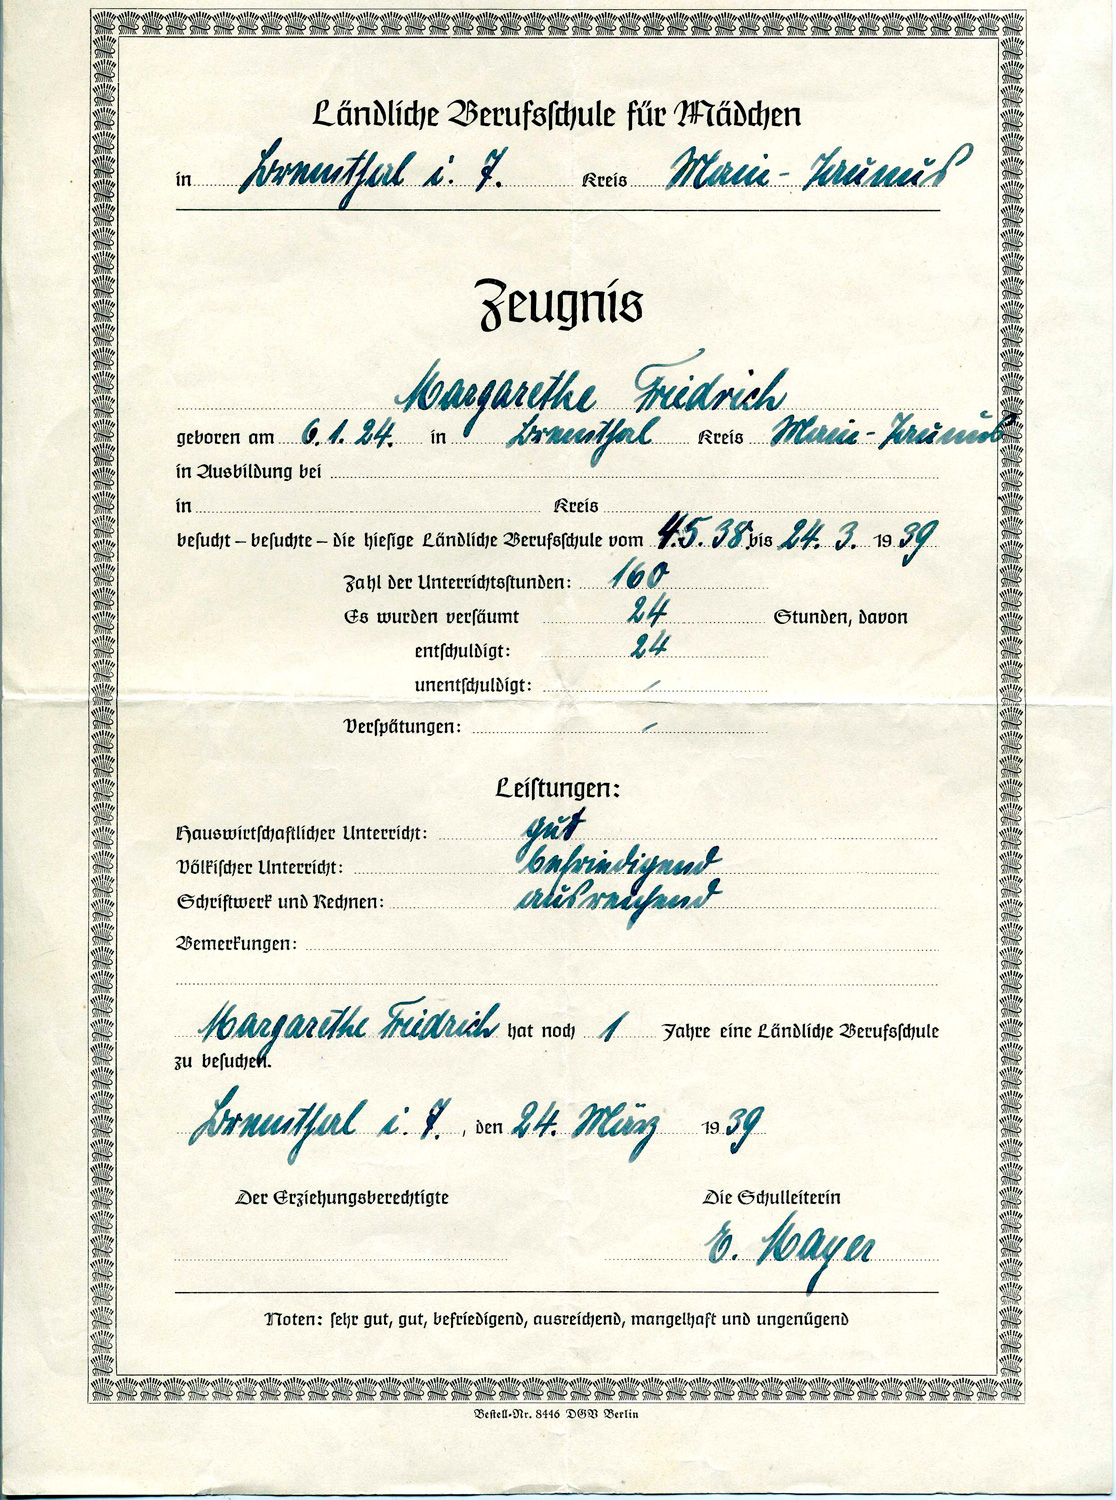 Ländliche Berufsschule für Mädchen
in Bremthal i. T. Kreis Main-Taunus
Zeugnis
Margarethe Friedrich
geboren am 6.1.24. in Bremthal Kreis Main-Taunus
in Ausbildung bei
in Kreis
besucht – besuchte – die hiesige Ländliche Berufsschule vom 4.5.38. bis 24.3. 1939
Zahl der Unterrichtsstunden: 160
Es wurden versäumt 24 Stunden, davon
entschuldigt: 24
unentschuldigt: –
Verspätungen: –
Leistungen:
Hauswirtschaftlicher Unterricht: gut
Völkischer Unterricht: befriedigend
Schriftwerk und Rechnen: ausreichend
Bemerkungen:
Margarethe Friedrich hat noch 1 Jahre eine Ländliche Berufsschule
zu besuchen.
Bremthal i. T., den 24. März 1939
Der Erziehungsberechtigte Die Schulleiterin
E. Mayer
Noten: sehr gut, gut, befriedigend, ausreichend, mangelhaft und ungenügend
Bestell-Nr. 8446 DGV Berlin